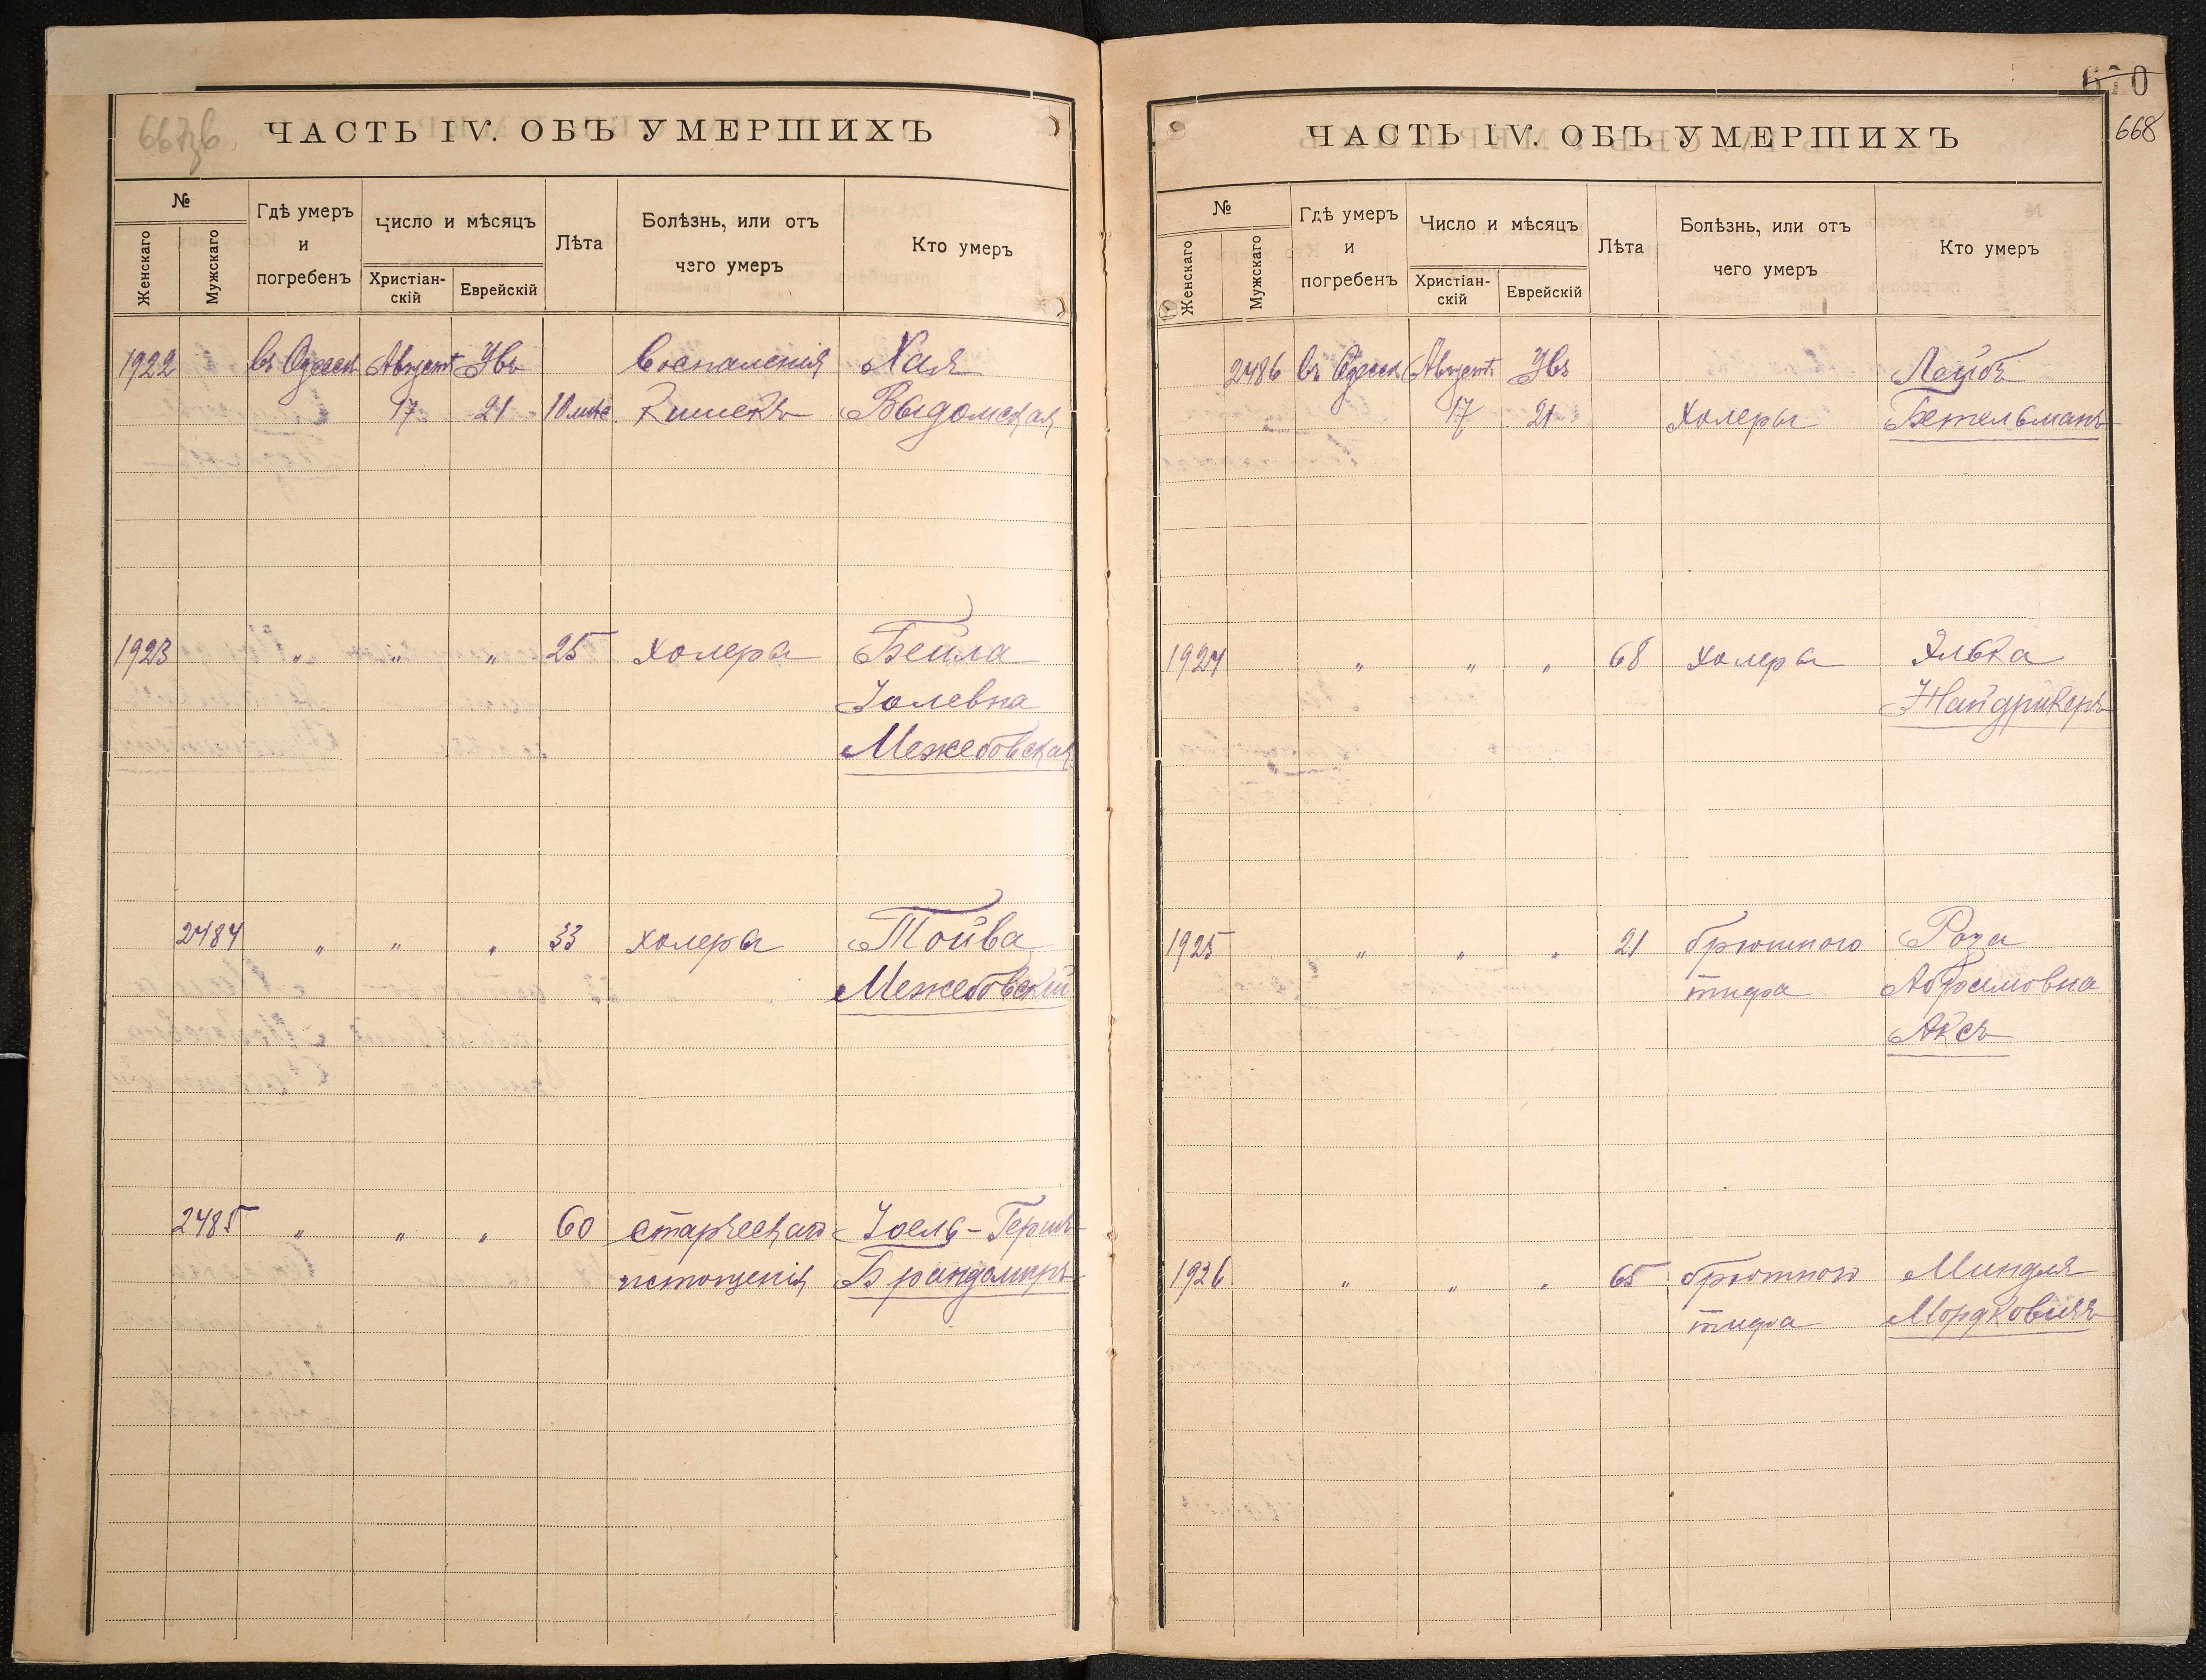 667об
ЧАСТЬ IV. ОБЪ УМЕРШИХЪ
№
Женскаго
Мужскаго
Гдѣ умеръ
и
погребенъ
Число и мѣсяцъ
Христіан-
скій
Еврейскій
Лѣта
Болѣзнь, или отъ
чего умеръ
Кто умеръ
1922 въ Одессѣ Августъ Убъ Воспаленія Хая
17 21 10 мѣс. Кишекъ Выдомская
1923 " " " 25 холера Бейла
Іолевна
Межебовская
2484 " " " 33 холера Тойва
Межебовскій
2485 " " " 60 старческаго Іоель-Гершъ
истощенія Брандомиръ
670
668
ЧАСТЬ IV. ОБЪ УМЕРШИХЪ
№
Женскаго
Мужскаго
Гдѣ умеръ
и
погребенъ
Число и мѣсяцъ
Христіан-
скій
Еврейскій
Лѣта
Болѣзнь, или отъ
чего умеръ
Кто умеръ
2486 въ Одессѣ Августъ Убъ Лейбъ
17 21 Холеры Бетельманъ
1924 " " " 68 холера Элька
Жайдрикеръ
1925 " " " 21 брюшного Роза
тифа Абрамовна
Аксъ
1926 " " " 65 брюшного Миндля
тифа Мордковичъ